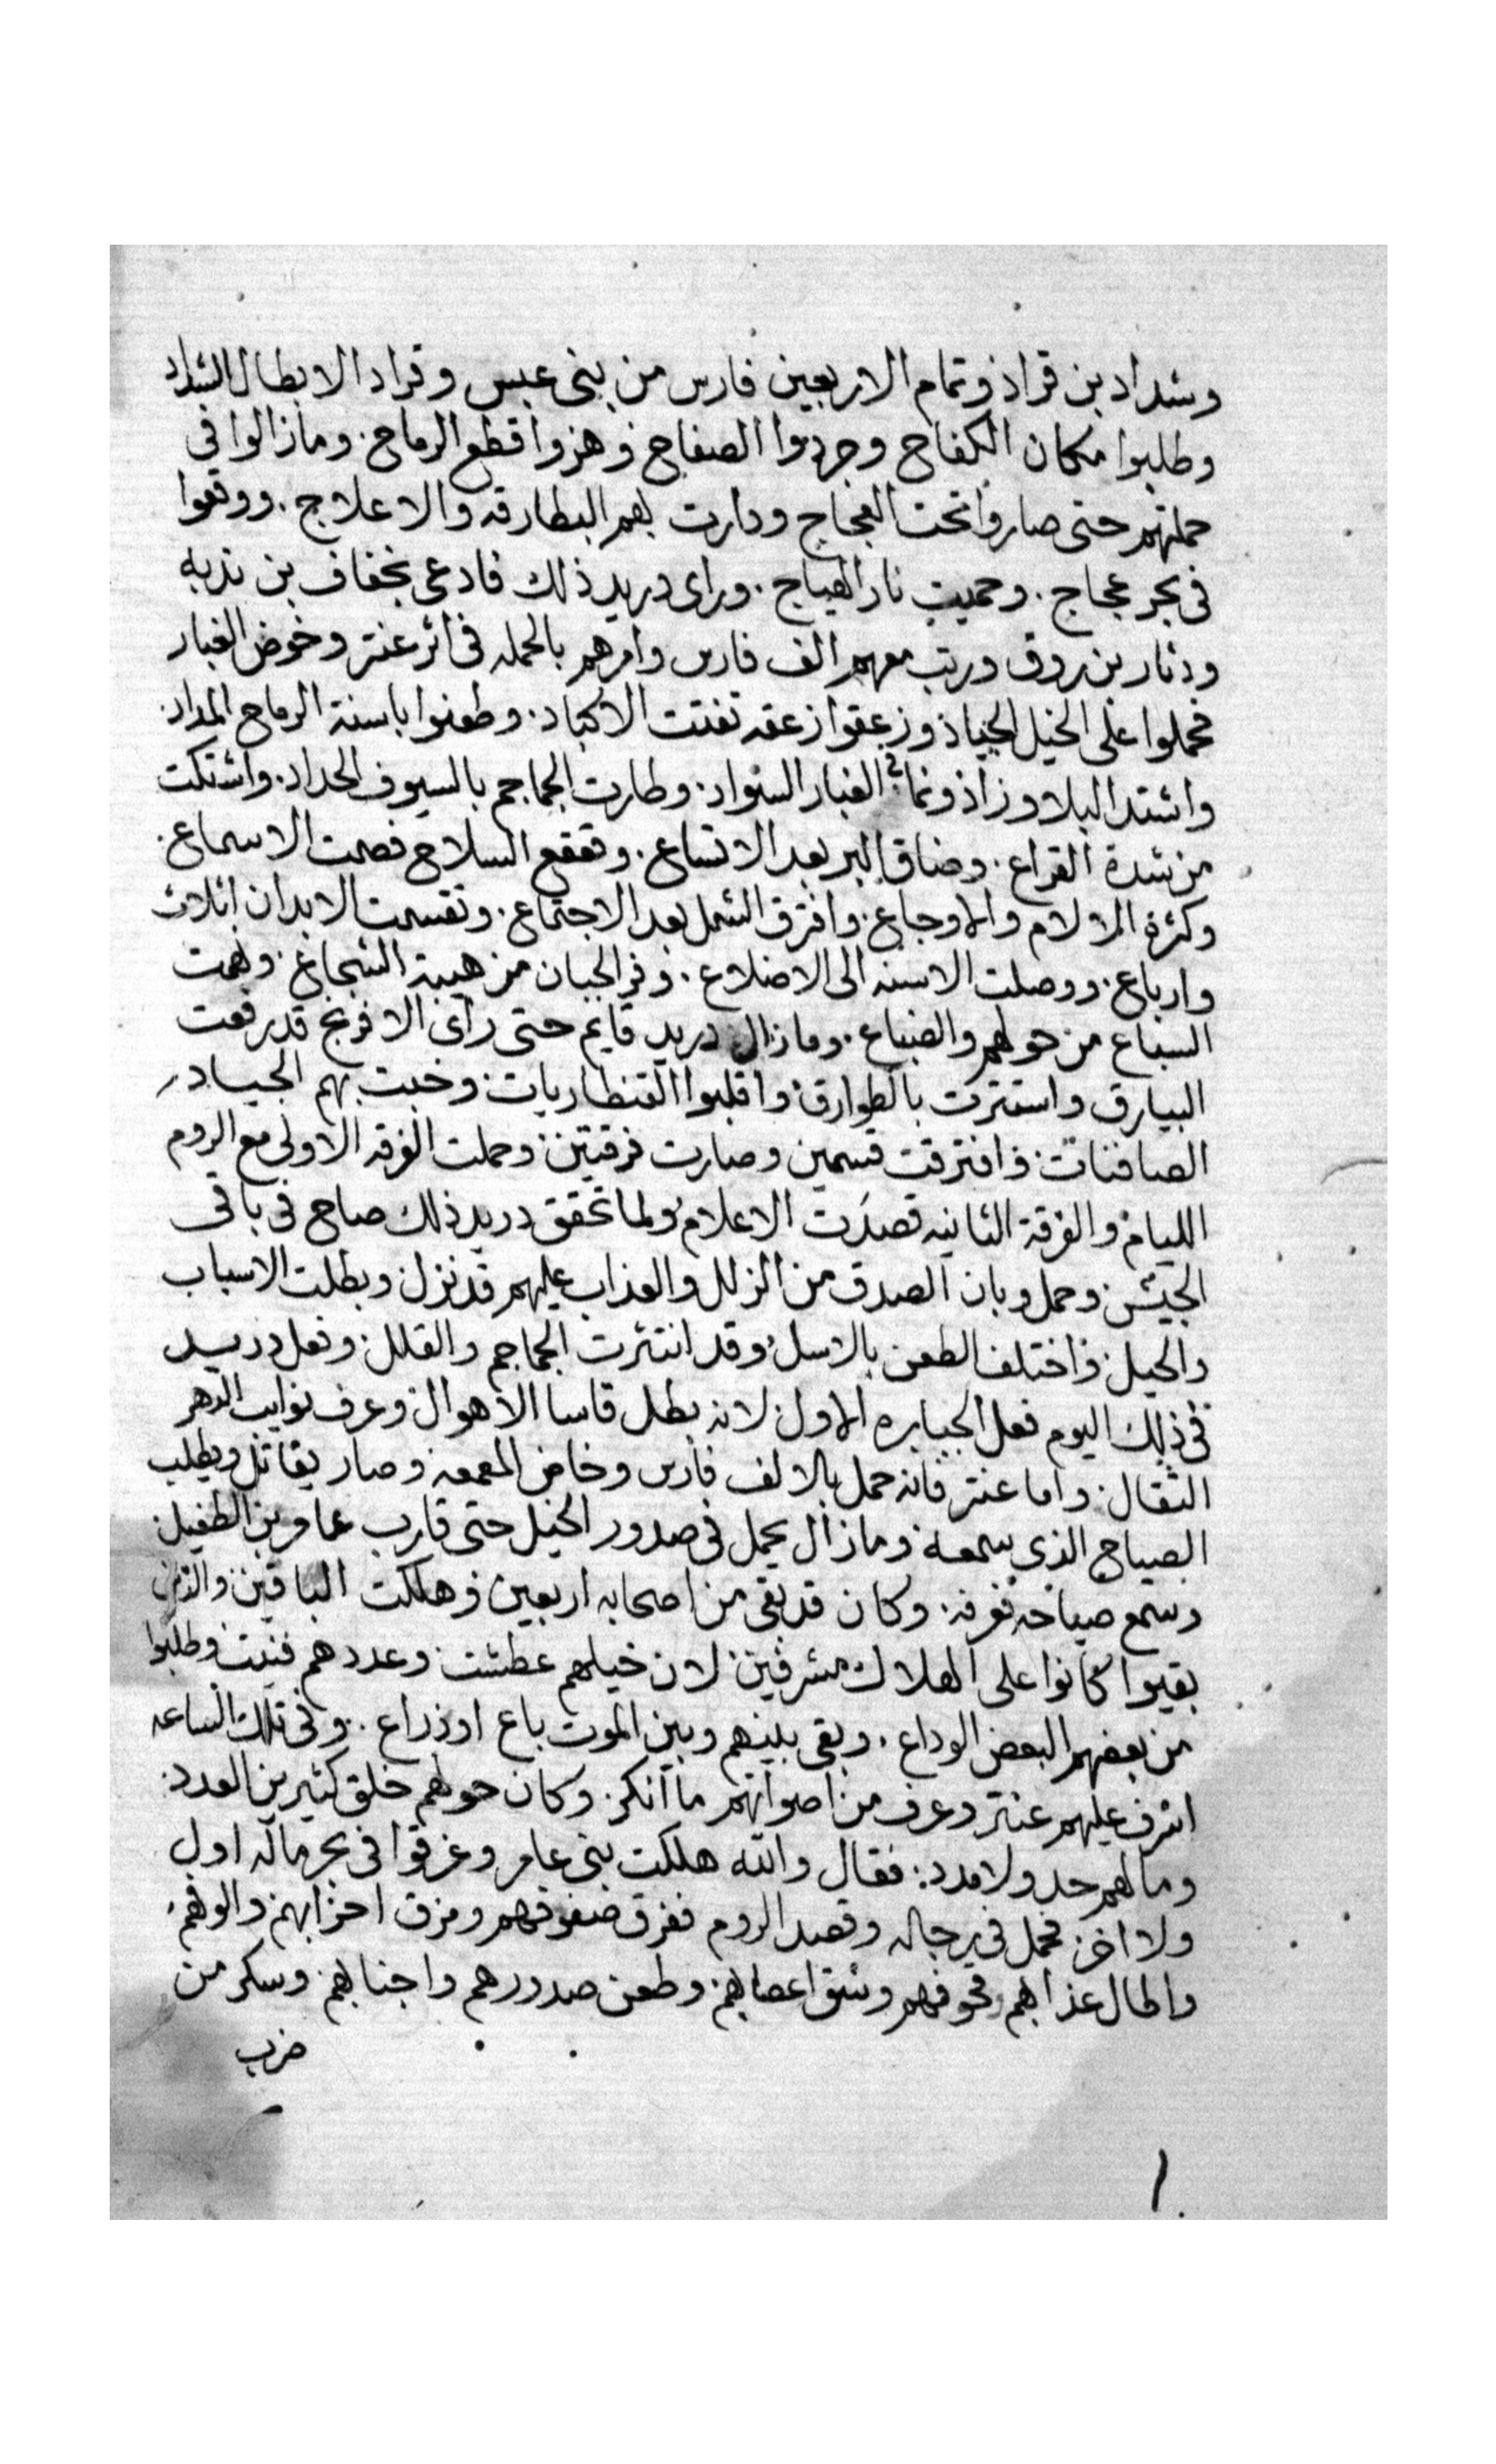 وشداد بن قراد وتمام الاربعين فارس من بني عبس وقراد الابطال الشداد
وطلبوا مكان الكفاح وجردوا الصفاح وهزوا قطع الرماح. ومازالوا في
حملتهم حتى صاروا تحت العجاج ودارت بهم البطارقه والاعلاج. ووقعوا
في بحر عجاج. وحميت نار الهياج. وراى دريد ذلك فادعى بخفاف بن ندبه
ودثار بن روق ورتب معهم الف فارس وامرهم بالحمله في اثر عنتر وخوض الغبار
فحملوا على الخيل الجياد وزعقوا زعقه تفتت الاكباد. وطعنوا باسنة الرماح المداد.
واشتد البلا وزاد ونما في الغبار السواد. وطارت الجماجم بالسيوف الحداد. واشتكت
من شدة القراع. وضاق البر بعد الاتساع. وتقعقع السلاح فصمت الاسماع.
وكثرة الالام والاوجاع. وافترق الشمل بعد الاجتماع. وتقسمت الابدان اثلاث
وارباع. ووصلت الاسنه الى الاضلاع. وفر الجبان من هيبة الشجاع. وهمت
السباع من حولهم والضباع. ومازال دريد قايم حتى راى الافرنج قد رفعت
البيارق واستترت بالطوارق واقلبوا القنطاريات وخبت بهم الجياد
الصافنات. وافترقت قسمين وصارت فرقتين وحملت الفرقه الاولى مع الروم
الليام والفرقة الثانيه قصدت الاعلام ولما تحقق دريد ذلك صاح في باقي
الجيش وحمل وبان الصدق من الزلل والعذاب عليهم قد نزل وبطلت الاسباب
والحيل واختلف الطعن بالاسل وقد انتثرت الجماجم والقلل وفعل دريد
في ذلك اليوم فعل الجبابره الاول لانه بطل قاسا الاهوال وعرف نوايب الدهر
الثقال. واما عنتر فانه حمل بالالف فارس وخاض المعمعه وصار يقاتل ويطلب
الصياح الذي يسمعه ومازال يحمل في صدور الخيل حتى قارب عامر بن الطفيل
وسمع صياحه فعرفه. وكان قد بقي من اصحابه اربعين وهلكت الباقين والذين
بقيوا كانوا على الهلاك مشرفين لان خيلهم عطشت وعددهم فنيت وطلبوا
من بعضهم البعض الوداع. وبقي بينهم وبين الموت باع او ذراع. وفي تلك الساعه
اشرف عليهم عنتر وعرف من اصواتهم ما انكر. وكان حولهم خلق كثيرين العدد.
وما لهم حد ولا مدد. فقال والله هلكت بني عامر وغرقوا في بحر ماله اول
ولا اخر. فحمل في رجاله وقصد الروم ففرق صفوفهم ومزق احزابهم والوفهم.
واطال عذابهم وخوفهم وشق اعصابهم وطعن صدورهم واجنابهم وسكر من
ضرب
١